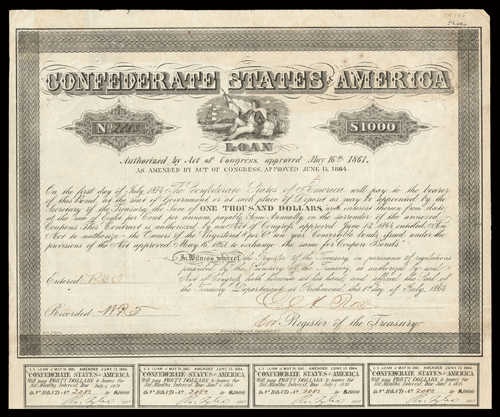 CONFEDERATE STATES AMERICA
No. 2083
$1000
LOAN
Authorized by Act of Congress, approved May 16th 1861.
AS AMENDED BY ACT OF CONGRESS, APPROVED JUNE 13, 1864.
On the first day of July, The Confederate States of America will pay to the bearer
of this Bond, at the seat of Government or at such place of Deposit as may be appointed by the
Secretary of the Treasury, the Sum of ONE THOUSAND DOLLARS, with interest thereon from date,
at the rate of Eight per Cent per annum, payable Semi Annually, on the surrender of the annexed
Coupons. This Contract is authorized by an Act of Congress approved June 13th 1864, entitled, An
Act to authorize the Owners of the Registered Ten year Convertible bonds issued under the
provisions of the Act approved May 16th 1861 to exchange the same for Coupon Bonds.
In Witness whereof, the Register of the Treasury, in pursuance of regulations
prescribed by the Secretary of the Treasury, as authorized by said
Act of Congress, hath hereunto set his hand and affixed the Seal of
the Treasury Department, at Richmond, this 1st day of July, 1864
Entered
Recorded
Register of the Treasury
C.S. LOAN OF MAY 16, 1861, AMENDED JUNE 13, 1864.
CONFEDERATE STATES OF AMERICA
Will pay FORTY DOLLARS to bearer for
Six Months Interest, Due
On No. BOND No. 2083 $1000
C.S. LOAN OF MAY 16, 1861, AMENDED JUNE 13, 1864.
CONFEDERATE STATES OF AMERICA
Will pay FORTY DOLLARS to bearer for
Six Months Interest, Due
On No. BOND No. 2083 $1000
C.S. LOAN OF MAY 16, 1861, AMENDED JUNE 13, 1864.
CONFEDERATE STATES OF AMERICA
Will pay FORTY DOLLARS to bearer for
Six Months Interest, Due
On No. BOND No. 2083 $1000
C.S. LOAN OF MAY 16, 1861, AMENDED JUNE 13, 1864.
CONFEDERATE STATES OF AMERICA
Will pay FORTY DOLLARS to bearer for
Six Months Interest, Due
On No. BOND No. 2083 $1000